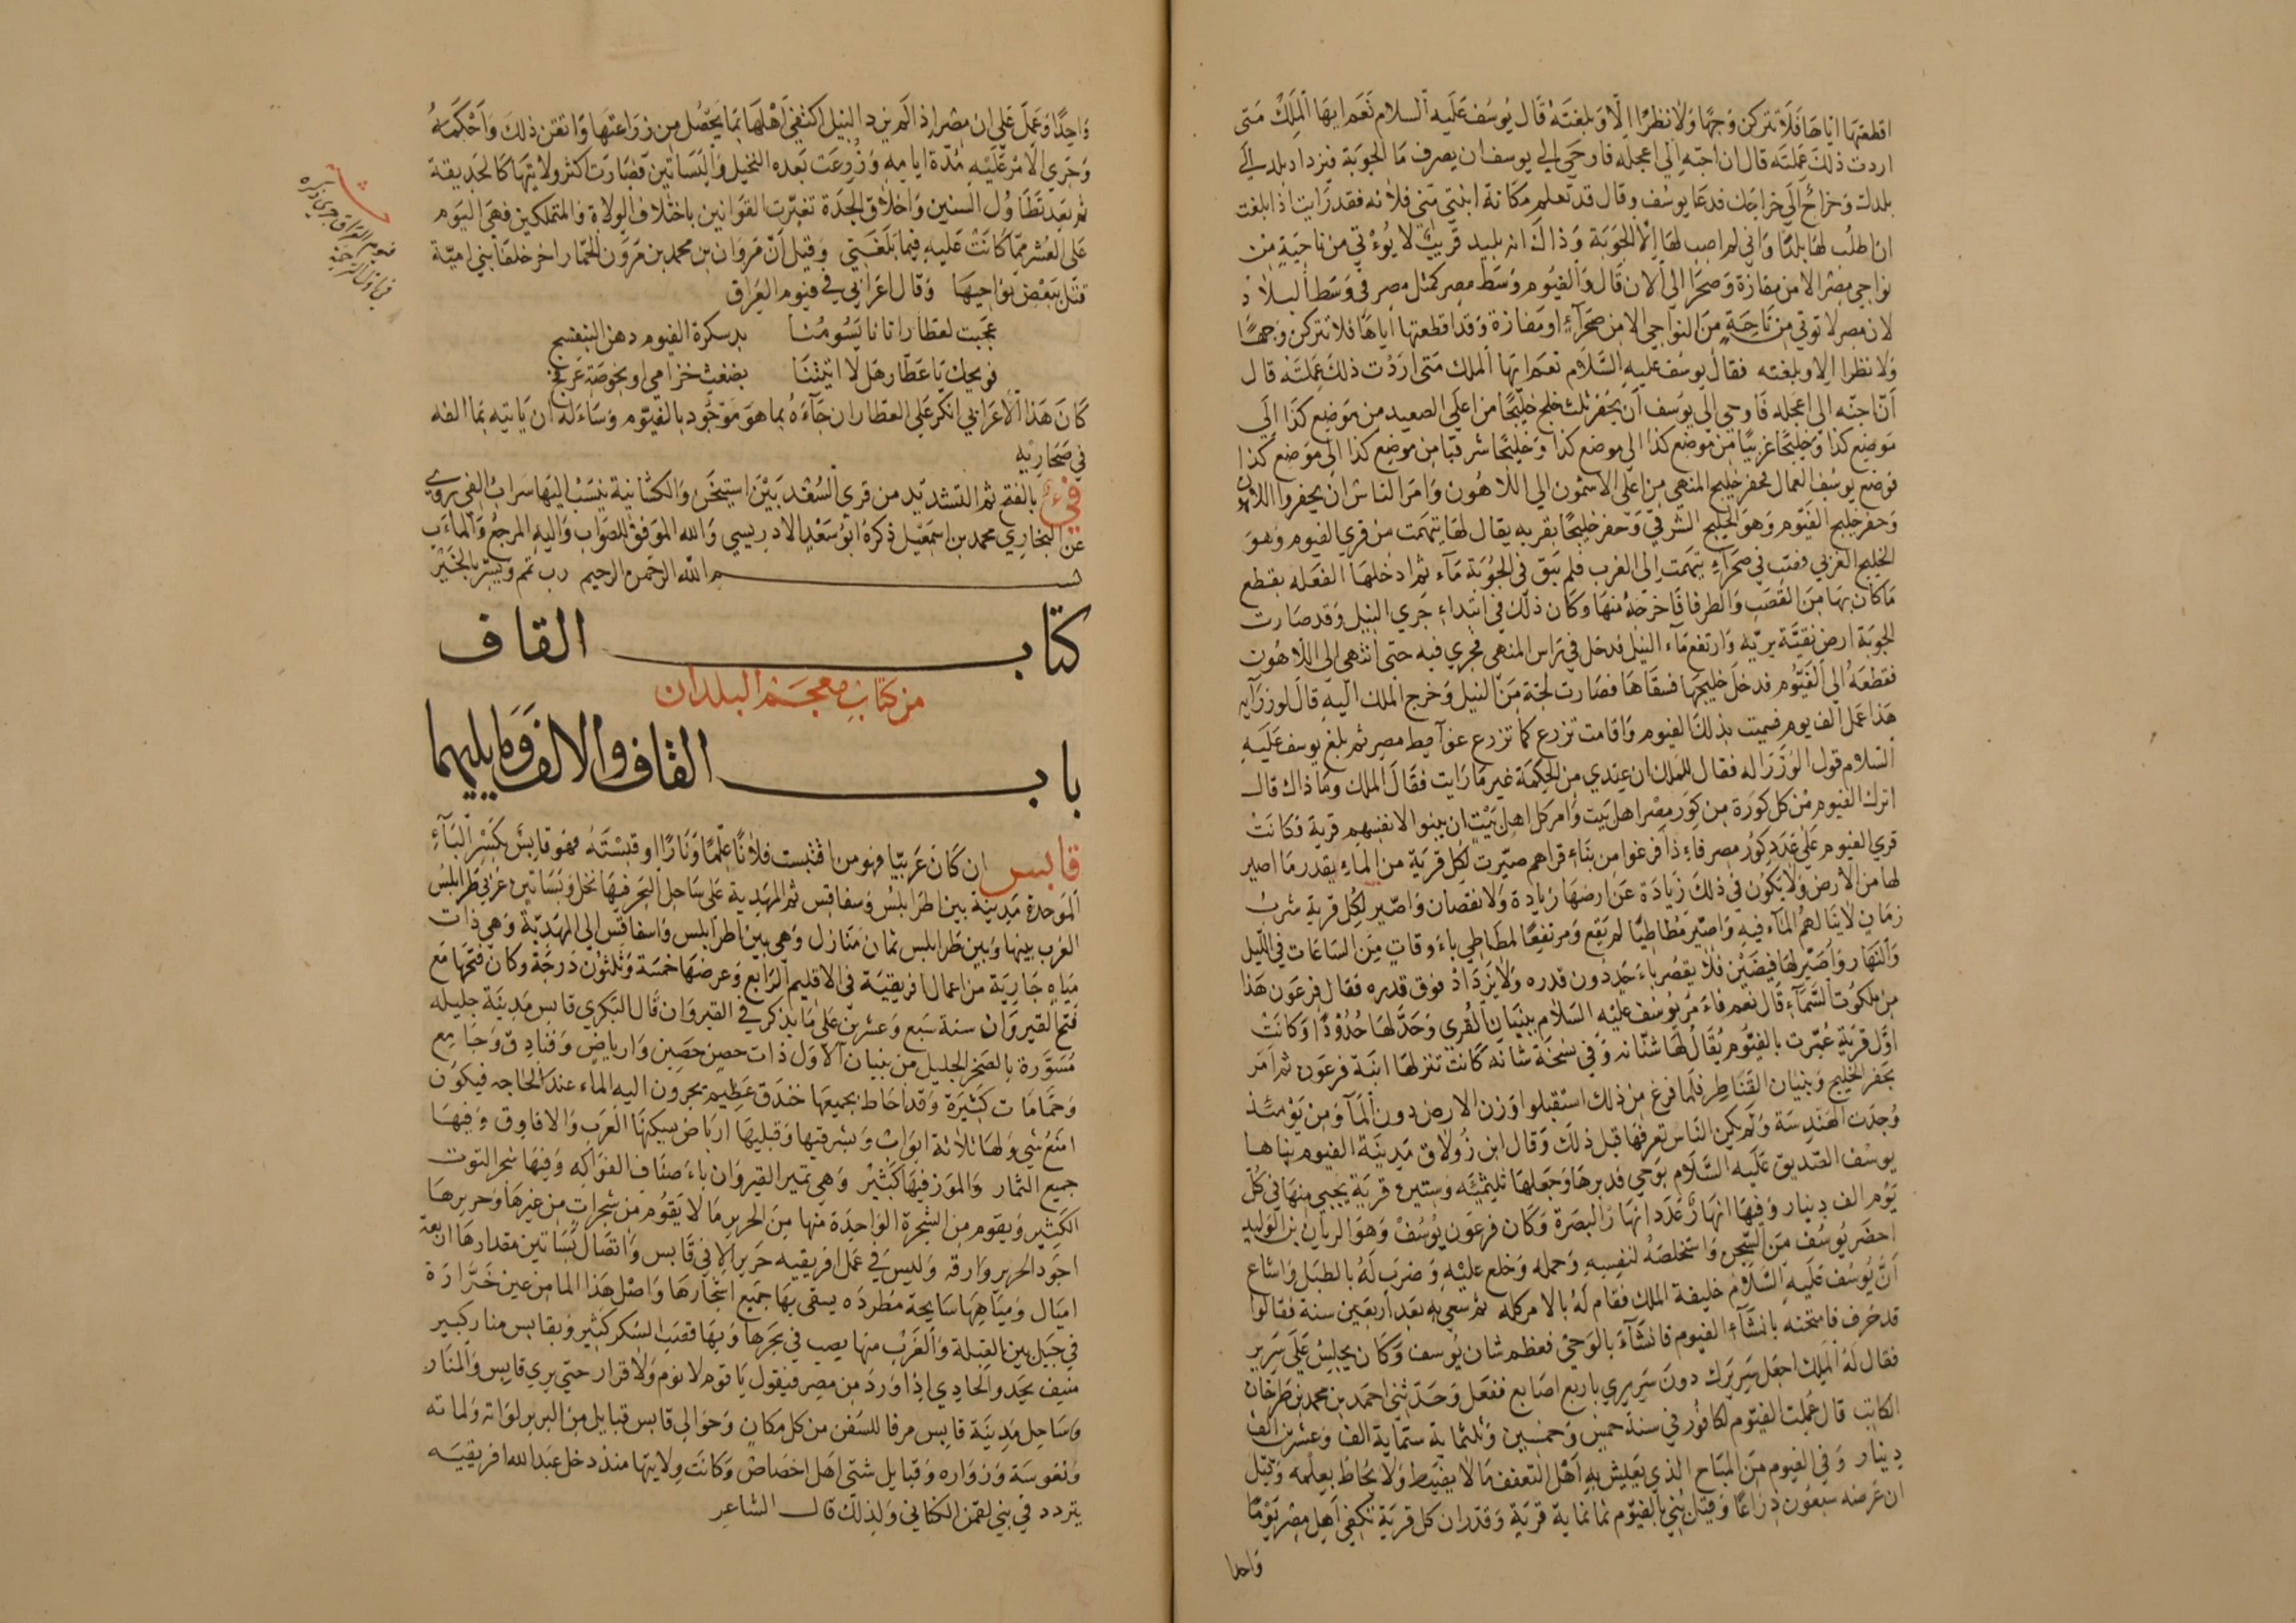 اقطعتها اياها فلا تتركن وجها ولا نظرا الا وبلغته قال يوسف عليه السلام نعم ايها الملك متى
اردت ذلك عملته قال ان احبه الي اعجله فاوحي الي يوسف ان يصرف ما الجوبة فيزداد بلد الي
بلدك وخراج الي خراجك فدعا يوسف وقال قد تعلم مكانة ابنتي مني فلانه فقد رايت اذا بلغت
ان اطلب لها بلدا واني لم اصب لها الا الجوبة وذاك انه بليد قريب لا يؤتي من ناحية من
نواحي مصر الا من مفازة وصحرا الي الان قال والفيوم وسط مصر كمثل مصر في وسط البلاد
لان مصر لا توتي من ناحية من النواحي الا من صحراء او مفازة وقد اقطعتها اياها فلا تتركن وجها
ولا نظرا الا وبلغته فقال يوسف عليه السلام نعم ايها الملك متى اردت ذلك عملته قال
ان احبه الي اعجله فاوحي الي يوسف ان يحفر ثلث خلج خليجا من اعلي الصعيد من موضع كذا الي
موضع كذا وخليجا غربيا من موضع كذا الي موضع كذا وخليجا شرقيا من موضع كذا الي موضع كذا
فوضع يوسف العمال فحفر خليج المنهي من اعلي الاشمون الي اللاهون وامر الناس ان يحفروا اللاهون
وحفر خليج الفيوم وهو الخليج الشرقي وحفر خليجا بقريه يقال لها تيهمت من قري الفيوم وهو
الخليج الغربي فصب في صحراء تيهمت الي الغرب فلم يبق في الجوبة ماء ثم ادخلها الفعله بقطع
ما كان بها من القصب والطرفا فاخرجه منها وكان ذلك في ابتداء جري النيل وقد صارت
الجوبة ارض نقية برية وارتفع ماء النيل فدخل في راس المنهي فجري فيه حتي انتهي الي اللاهون
فقطعه الي الفيوم فدخل خليجها فسقاها فصارت لجة من النيل وخرج الملك اليه قال لوزرايه
هذا عمل الف يوم فسميت بذلك الفيوم واقامت تزرع كما تزرع غوايط مصر ثم بلغ يوسف عليه
السلام قول الوزرا له فقال للملك ان عندي من الحكمة غير ما رايت فقال الملك وما ذاك قال
انزل الفيوم من كل كورة من كور مصر اهل بيت وامر كل اهل بيت ان يبنوا لانفسهم قرية فكانت
قري الفيوم علي عدد كور مصر فاء ذا فرغوا من بناء قراهم صيرت لكل قرية من الماء بقدر ما اصير
لها من الارض ولا يكون في ذلك زيادة عن ارضها زيادة ولا نقصان واصير لكل قرية شرب
زمان لا ينالهم الماء فيه واصير مطاطيا لمرتفع ومرتفعا لمطاطي باء وقات من الساعات في الليل
والنهار واصير لها فيضتين فلا يقصر باء حد دون قدره ولا يزداد فوق قدره فقال فرعون هذا
من ملكوت السماء قال نعم فاء مر يوسف عليه السلام ببنيان القري وحد لها حدودا وكانت
اول قرية عمرت بالفيوم يقال لها شانه وفي نسخة شانه كانت تنزلها ابنة فرعون ثم امر
بحفر الخليج وبنيان القناطر فلما فرغ من ذلك استقبلوا وزن الارض دون الماء ومن يومئذ
وجدت الهندسة ولم يكن الناس تعرفها قبل ذلك وقال ابن زولاق مدينة الفيوم بناها
يوسف الصديق عليه السلام بوحي فدبرها وجعلها ثلثمئه وستين قرية يجبي منها في كل
يوم الف دينار وفيها انهار عدد انهار البصرة وكان فرعون يوسف وهو الريان بن الوليد
احضر يوسف من السجن واستخلصه لنفسه وحمله وخلع عليه وضرب له بالطبل واشاع
ان يوسف عليه السلام خليفة الملك فقام له بالامر كله ثم سعي به بعد اربعين سنة فقالوا
قد خرف فامتحنه بانشاء الفيوم فانشاء بالوحي فعظم شان يوسف وكان يجلس علي سرير
فقال له الملك اجعل سريرك دون سريري باربع اصابع ففعل وحدثني احمد بن محمد بن طرخان
الكاتب قال عملت الفيوم لكافور في سنة خمس وخمسين وثلثماية ستماية الف وعشرين الف
دينار وفي الفيوم من المباح الذي يعيش به اهل التعفف ما لا يضبط ولا يحاط بعلمه وقيل
ان عرضه سبعون ذراعا وقيل بني بالفيوم ثمانماية قرية وقدر ان كل قرية تكفي اهل مصر يوما
واحدا
واحدا وعمل علي ان مصر اذا لم يزد النيل اكتفي اهلها بما يحصل من زراعتها واتقن ذلك واحكمه
وجري الامر عليه مدة ايامه وزرعت بعده النخيل والبساتين فصارت اكثر ولايتها كالحديقة
ثم بعد تطاول السنين واخلاق الجدة تغيرت القوانين باختلاف الولاة والمتملكين فهي اليوم
علي العشر مما كانت عليه فيما بلغني وقيل ان مروان بن محمد بن مروان الحمار اخر خلفا بني امية
قتل ببعض نواحيها وقال اعرابي في فيوم العراق
عجبت لعطار اتانا يسومنا بدسكرة الفيوم دهن البنفسج
فويحك يا عطار هلا اتيتنا بضغث خزامي او بخوصة عرفج
كان هذا الاعرابي انكر علي العطار ان جاءه بما هو موجود بالفيوم وساءله ان ياتيه بما الفه
في صحاريه
فيء بالفتح ثم التشديد من قري السغد بين اشتيخن والكشانية ينسب اليها سراب الفيي يروي
عن البخاري محمد بن اسمعيل ذكره ابو سعيد الادريسي والله الموفق للصواب واليه المرجع والماءب
بسم الله الرحمن الرحيم رب تمم ويسر بالخير
كتاب القاف
من كتاب معجم البلدان
باب القاف والالف وما يليهما
قابس ان كان عربيا فهو من اقتبست فلانا علما ونارا او قبسته فهو قابس بكسر الباء
الموحدة مدينة بين اطرابلس وسفاقس ثم المهدية علي ساحل البحر فيها نخل وبساتين غربي طرابلس
الغرب بينها وبين طرابلس ثمان منازل وهي بين اطرابلس واسفاقس الي المهدية وهي ذات
مياه جارية من اعمال افريقية في الاقليم الرابع وعرضها خمسة وثلثون درجة وكان فتحها مع
فتح القيروان سنة سبع وعشرين علي ما يذكر في القيروان قال البكري قابس مدينة جليله
مسورة بالصخر الجليل من بنيان الاول ذات حصن حصين وارباض وفنادق وجامع
وحمامات كثيرة وقد احاط بجميعها خندق عظيم يجرون اليه الماء عند الحاجه فيكون
امنع شي ولها ثلاثة ابواب وبشرقيها وقبليها ارباض يسكنها العرب والافاوق وفيها
جميع الثمار والموز فيها كثير وهي تمير القيروان باء صناف الفواكه وفيها شجر التوت
الكثير ويقوم من الشجرة الواحدة منها من الحرير ما لا يقوم من شجرات من غيرها وحريرها
اجود الحرير وارقه وليس في عمل افريقيه حرير الا في قابس واتصال بساتين مقدارها اربعة
اميال ومياهها سايحة مطرده يسقي بها جميع اشجارها واصل هذا الما من عين خرارة
في جبل بين القبلة والغرب منها يصب في بحرها وبها قصب السكر كثير وبقابس منار كبير
منيف يحدو الحادي اذا ورد من مصر فيقول يا قوم لا نوم ولا قرار حتي يري قابس والمنار
وساحل مدينة قابس مرفا للسفن من كل مكان وحوالي قابس قبايل من البربر لواته ولماته
ونفوسة وزواره وقبايل شتي اهل اخصاص وكانت ولايتها منذ دخل عبد الله افريقيه
يتردد في بني لقمن الكناني ولذلك قال الشاعر
فيوم العراق جري ذكره
في اول الترجمة